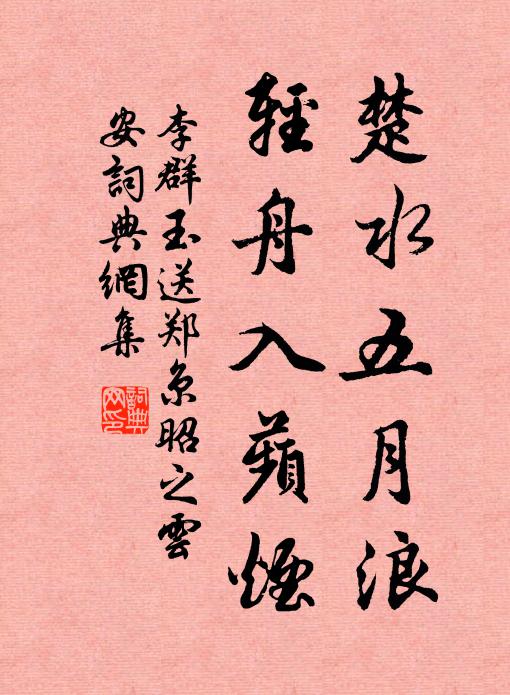 楚水五月浪
輕舟入蘋煙
李群玉送郑京昭之雲
安詞典網集
詞典
网印